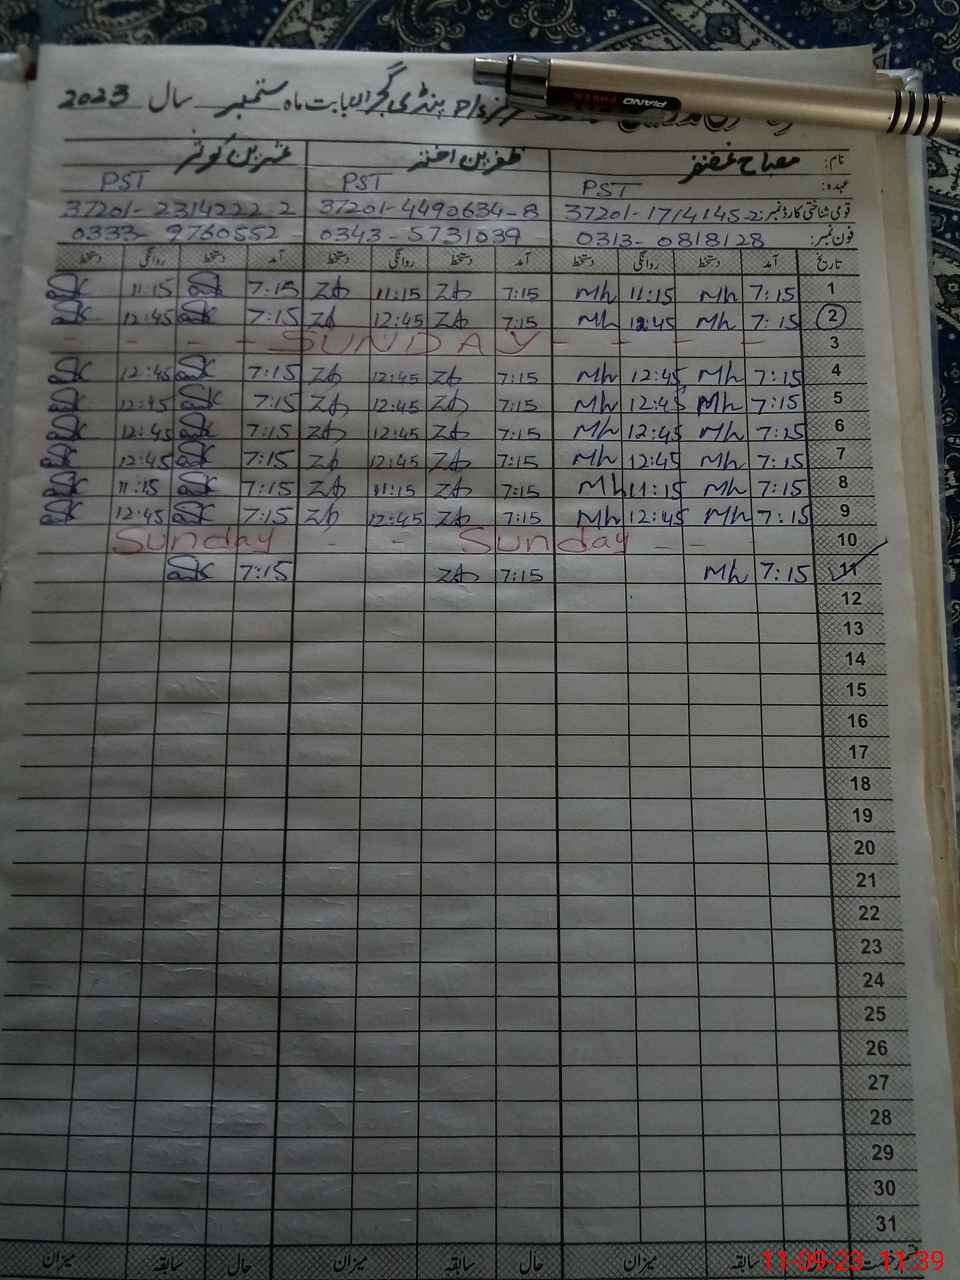 P/S پنڈی گجراں بابت ماہ ستمبر سال 2023
نام: مصباح غضنفر ظفرین اختر عنبرین کوثر
عہدہ: PST PST PST
قومی شناختی کارڈ نمبر: 37201-1714145-2 37201-4490634-8 37201-2314222-2
فون نمبر: 0313-0818128 0343-5731039 0333-9760552
تاریخ آمد دستخط روانگی دستخط آمد دستخط روانگی دستخط آمد دستخط روانگی دستخط
1 7:15 Mh 11:15 Mh 7:15 ZA 11:15 ZA 7:15 11:15
2 7:15 Mh 12:45 Mh 7:15 ZA 12:45 ZA 7:15 12:45
3 SUNDAY
4 7:15 Mh 12:45 Mh 7:15 ZA 12:45 ZA 7:15 12:45
5 7:15 Mh 12:45 Mh 7:15 ZA 12:45 ZA 7:15 12:45
6 7:15 Mh 12:45 Mh 7:15 ZA 12:45 ZA 7:15 12:45
7 7:15 Mh 12:45 Mh 7:15 ZA 12:45 ZA 7:15 12:45
8 7:15 Mh 11:15 Mh 7:15 ZA 11:15 ZA 7:15 11:15
9 7:15 Mh 12:45 Mh 7:15 ZA 12:45 ZA 7:15 12:45
10 Sunday Sunday
11 7:15 Mh 7:15 ZA 7:15
12
13
14
15
16
17
18
19
20
21
22
23
24
25
26
27
28
29
30
31
سابقہ میزان حال سابقہ میزان حال سابقہ میزان
PIANO
11-09-23 11:39